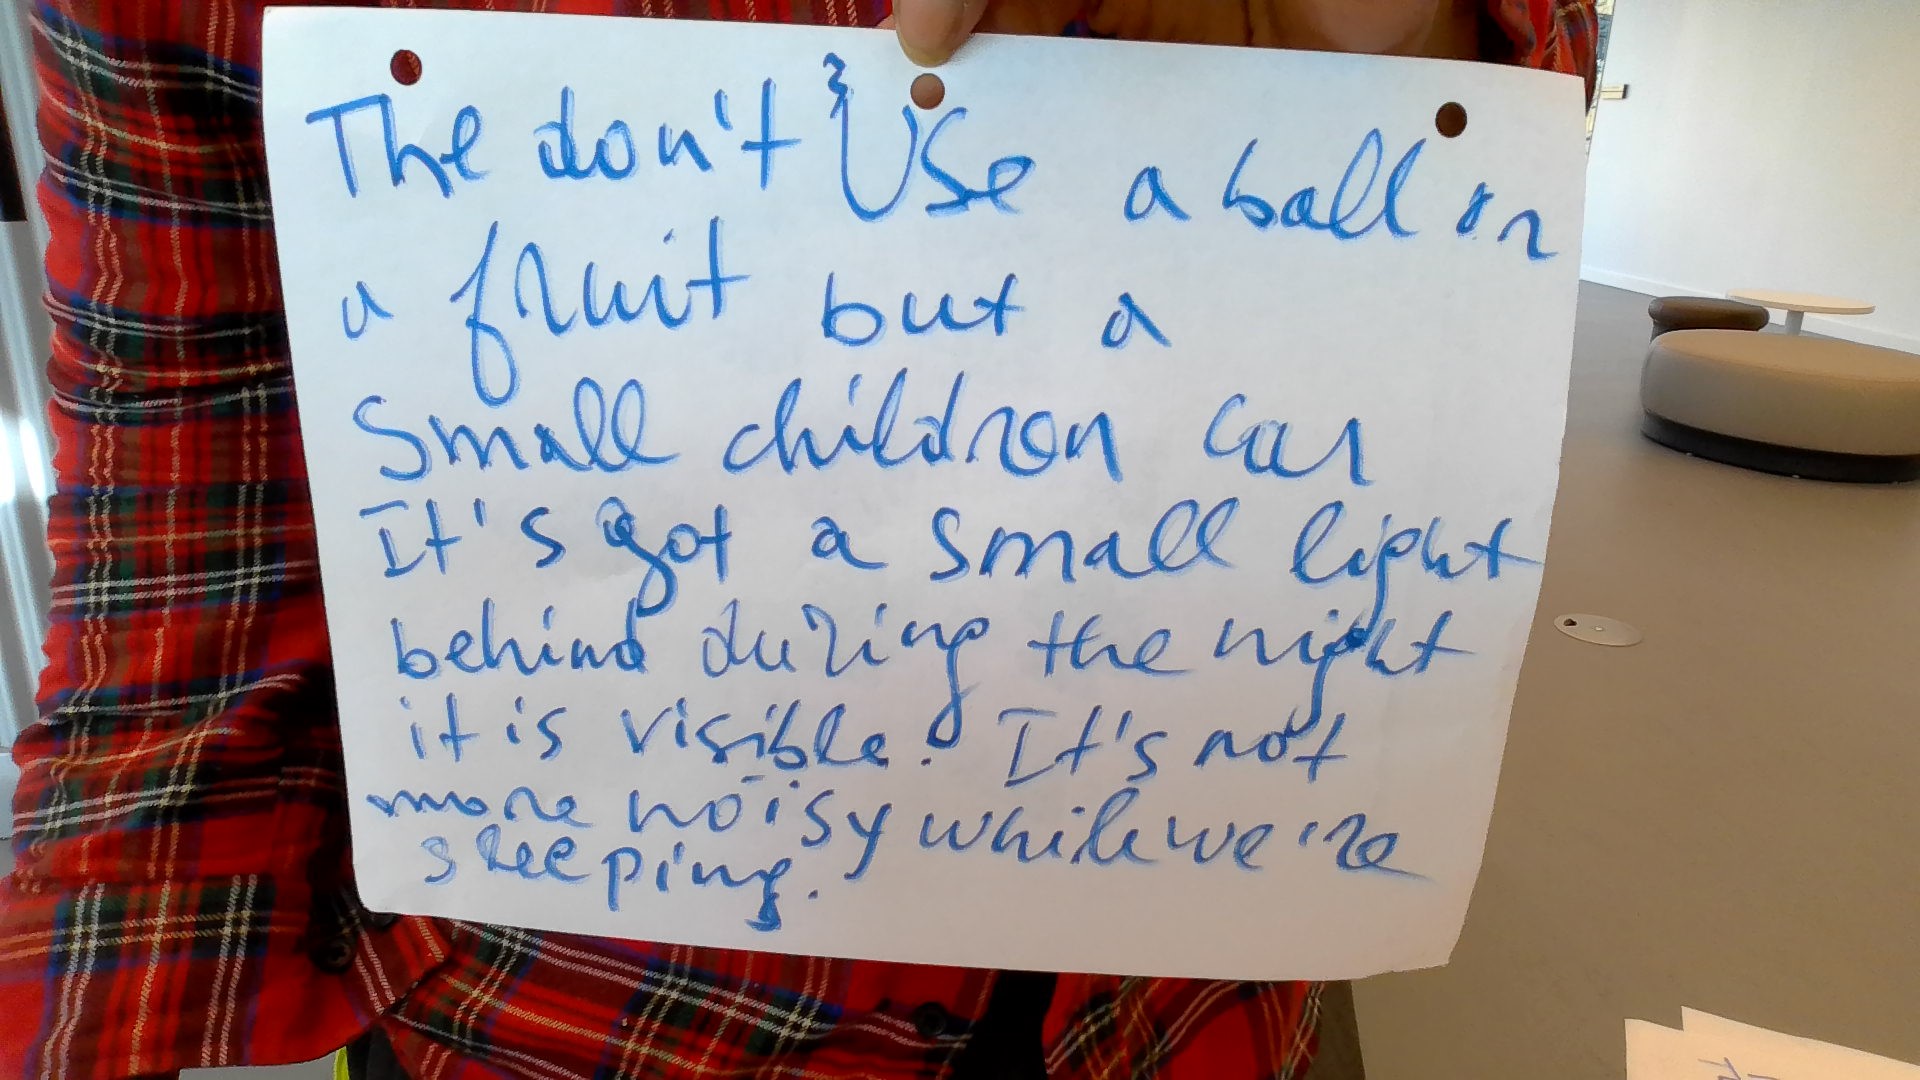 The don't Use a ball or
a fruit but a
small children car
It's got a small light
behind during the night
it is visible. It's not
more noisy while we're
sleeping.